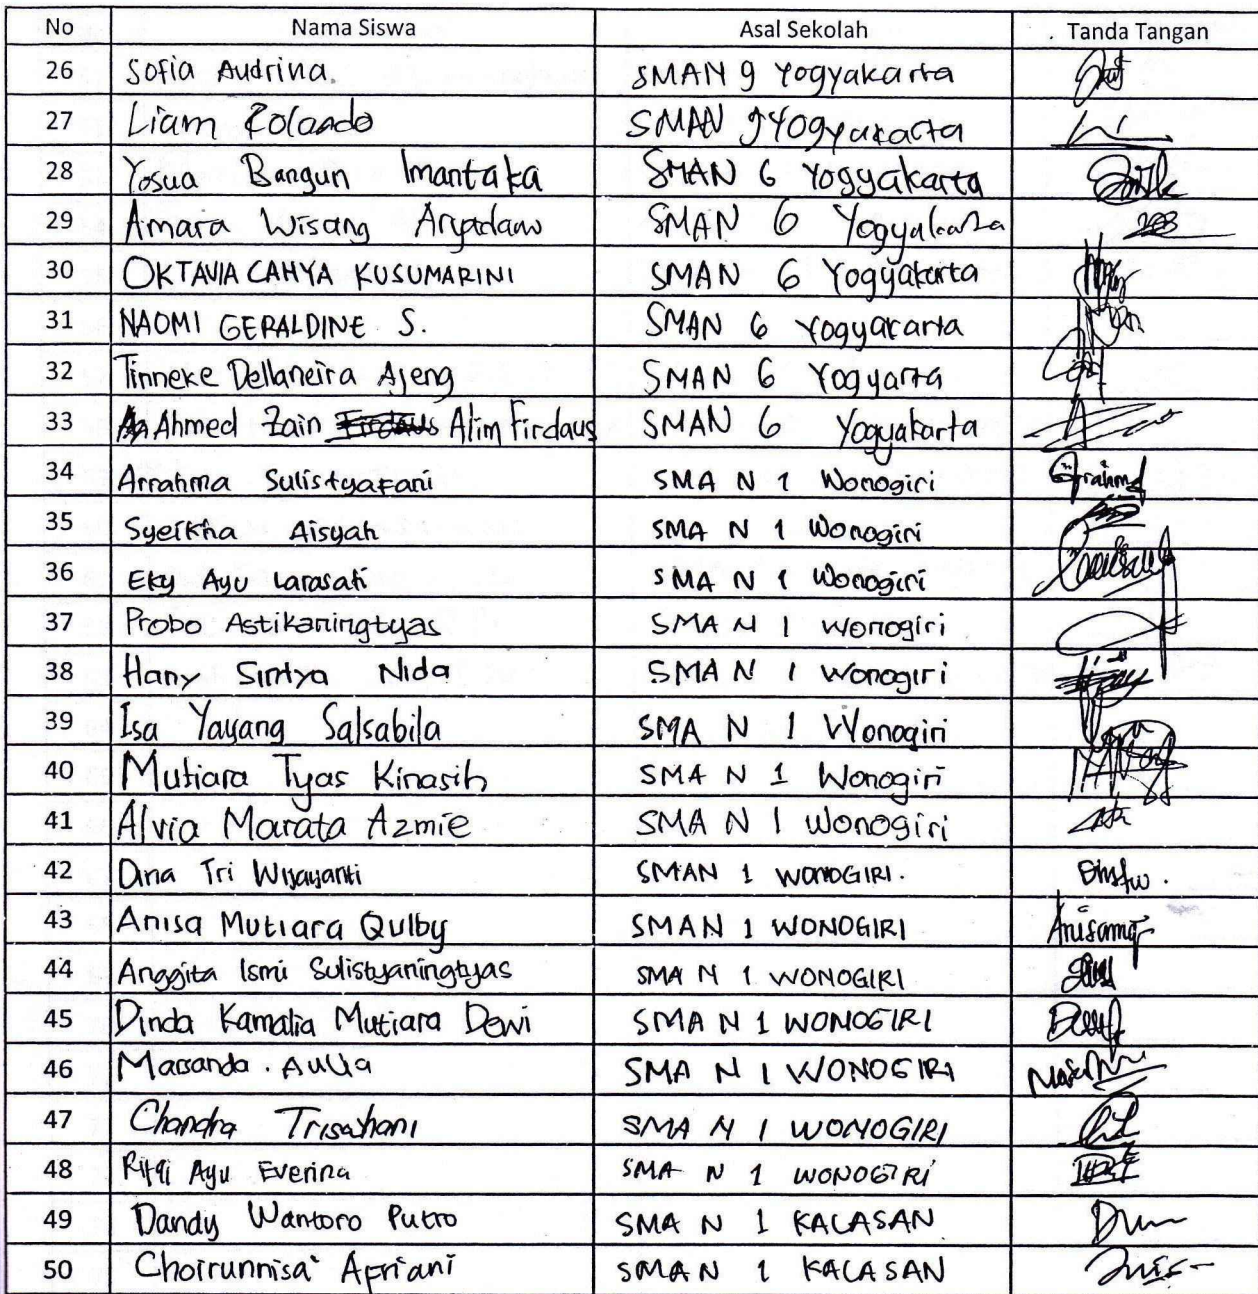 No Nama Siswa Asal Sekolah . Tanda Tangan
26 Sofia Audrina. SMAN 9 Yogyakarta
27 Liam Rolando SMAN 9 Yogyakarta
28 Yosua Bangun Imantaka SMAN 6 Yogyakarta
29 Amara Wisang SMAN 6 Yogyakarta
30 OKTAVIA CAHYA KUSUMARINI SMAN 6 Yogyakarta
31 NAOMI GERALDINE S. SMAN 6 Yogyacarta
32 Tinneke Dellaneira Ajeng SMAN 6 Yogyarta
33 Ahmed Zain Firdaus Alim Firdaus SMAN 6 Yogyakarta
34 Arrahma Sulistyafani SMA N 1 Wonogiri
35 Syeikha Aisyah SMA N 1 Wonogiri
36 Eky Ayu Larasati SMA N 1 Wonogiri
37 Probo Astikaningtyas SMA N 1 Wonogiri
38 Hany Sintya Nida SMA N 1 Wonogiri
39 Isa Yayang Salsabila SMA N 1 Wonogiri
40 Mutiara Tyas Kinasih SMA N 1 Wonogiri
41 Alvia Marata Azmie SMA N 1 Wonogiri
42 Dina Tri Wijayanti SMAN 1 WONOGIRI.
43 Anisa Mutiara Qulby SMAN 1 WONOGIRI
44 Anggita Ismi Sulistyaningtyas SMA N 1 WONOGIRI
45 Dinda Kamalia Mutiara Dewi SMA N 1 WONOGIRI
46 Marsanda . Aulia SMA N 1 WONOGIRI
47 Chandra SMA N 1 WONOGIRI
48 Ayu Everina SMA N 1 WONOGIRI
49 Dandy Wantoro Putro SMA N 1 KALASAN
50 Choirunnisa' Apriani SMA N 1 KALASAN